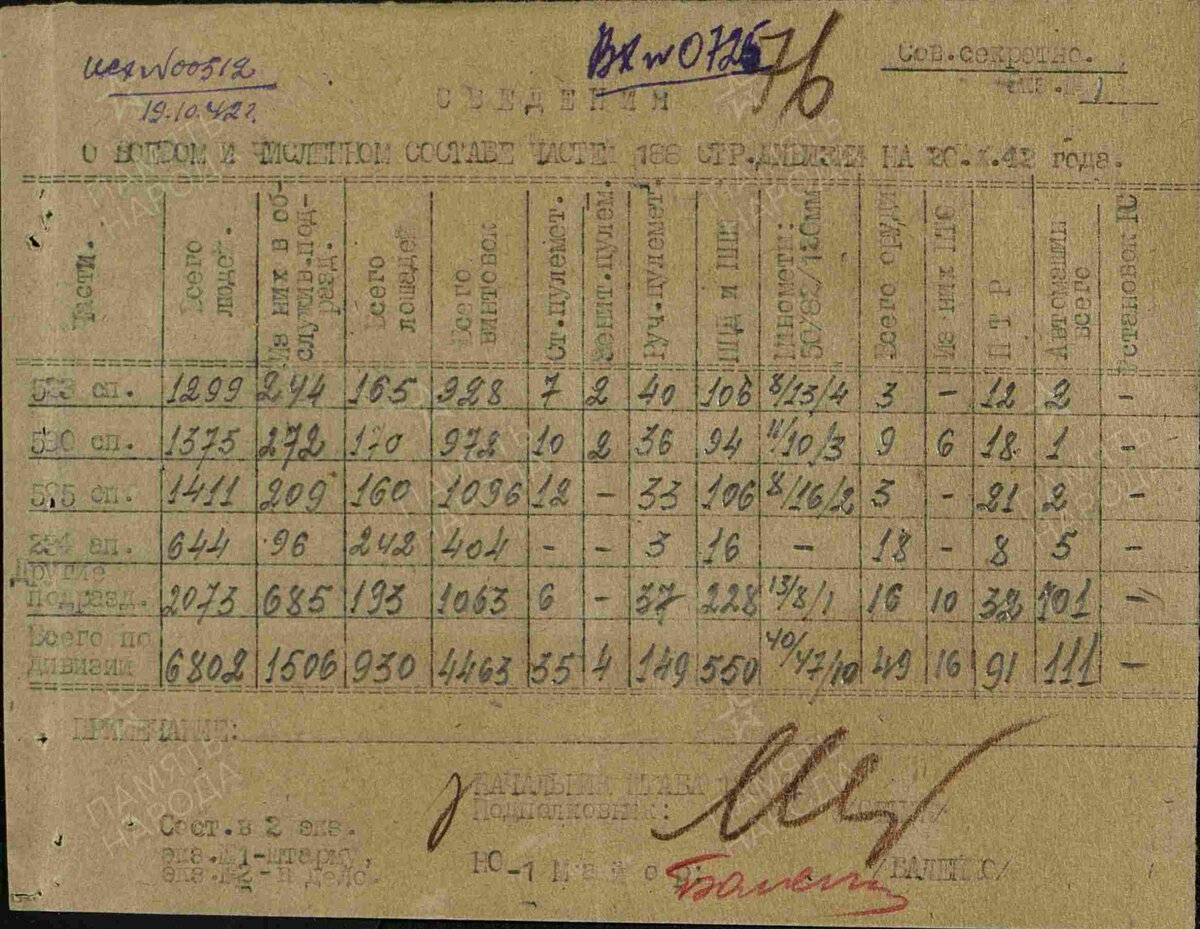 исх№00512
19.10.42г.
Вх№0725
76
Сов.секретно.
экз.№1
СВЕДЕНИЯ
О БОЕВОМ И ЧИСЛЕННОМ СОСТАВЕ ЧАСТЕЙ 188 СТР.ДИВИЗИИ НА 20.X.42 года.
Части. Всего людей. Из них в обслужив.подразд. Всего лошадей Всего винтовок Ст.пулемет. Зенит.пулем. Руч.пулемет. ППД и ППШ Минометы: 50/82/120мм Всего орудий Из них ПТО П Т Р Автомашин всего Установок РС
523 сп. 1299 244 165 928 7 2 40 106 8/13/4 3 - 12 2 -
580 сп. 1375 272 170 972 10 2 36 94 11/10/3 9 6 18 1 -
595 сп. 1411 209 160 1096 12 - 33 106 8/16/2 3 - 21 2 -
234 ап. 644 96 242 404 - - 3 16 - 18 - 8 5 -
Другие подразд. 2073 685 193 1063 6 - 37 228 13/8/1 16 10 32 101 -
Всего по дивизии 6802 1506 930 4463 35 4 149 550 40/47/10 49 16 91 111 -
ПРИМЕЧАНИЕ:
НАЧАЛЬНИК ШТАБА
Подполковник:
Сост.в 2 экз.
экз.№1-штарму,
экз.№2-в дело.
НО-1 М а й о р: